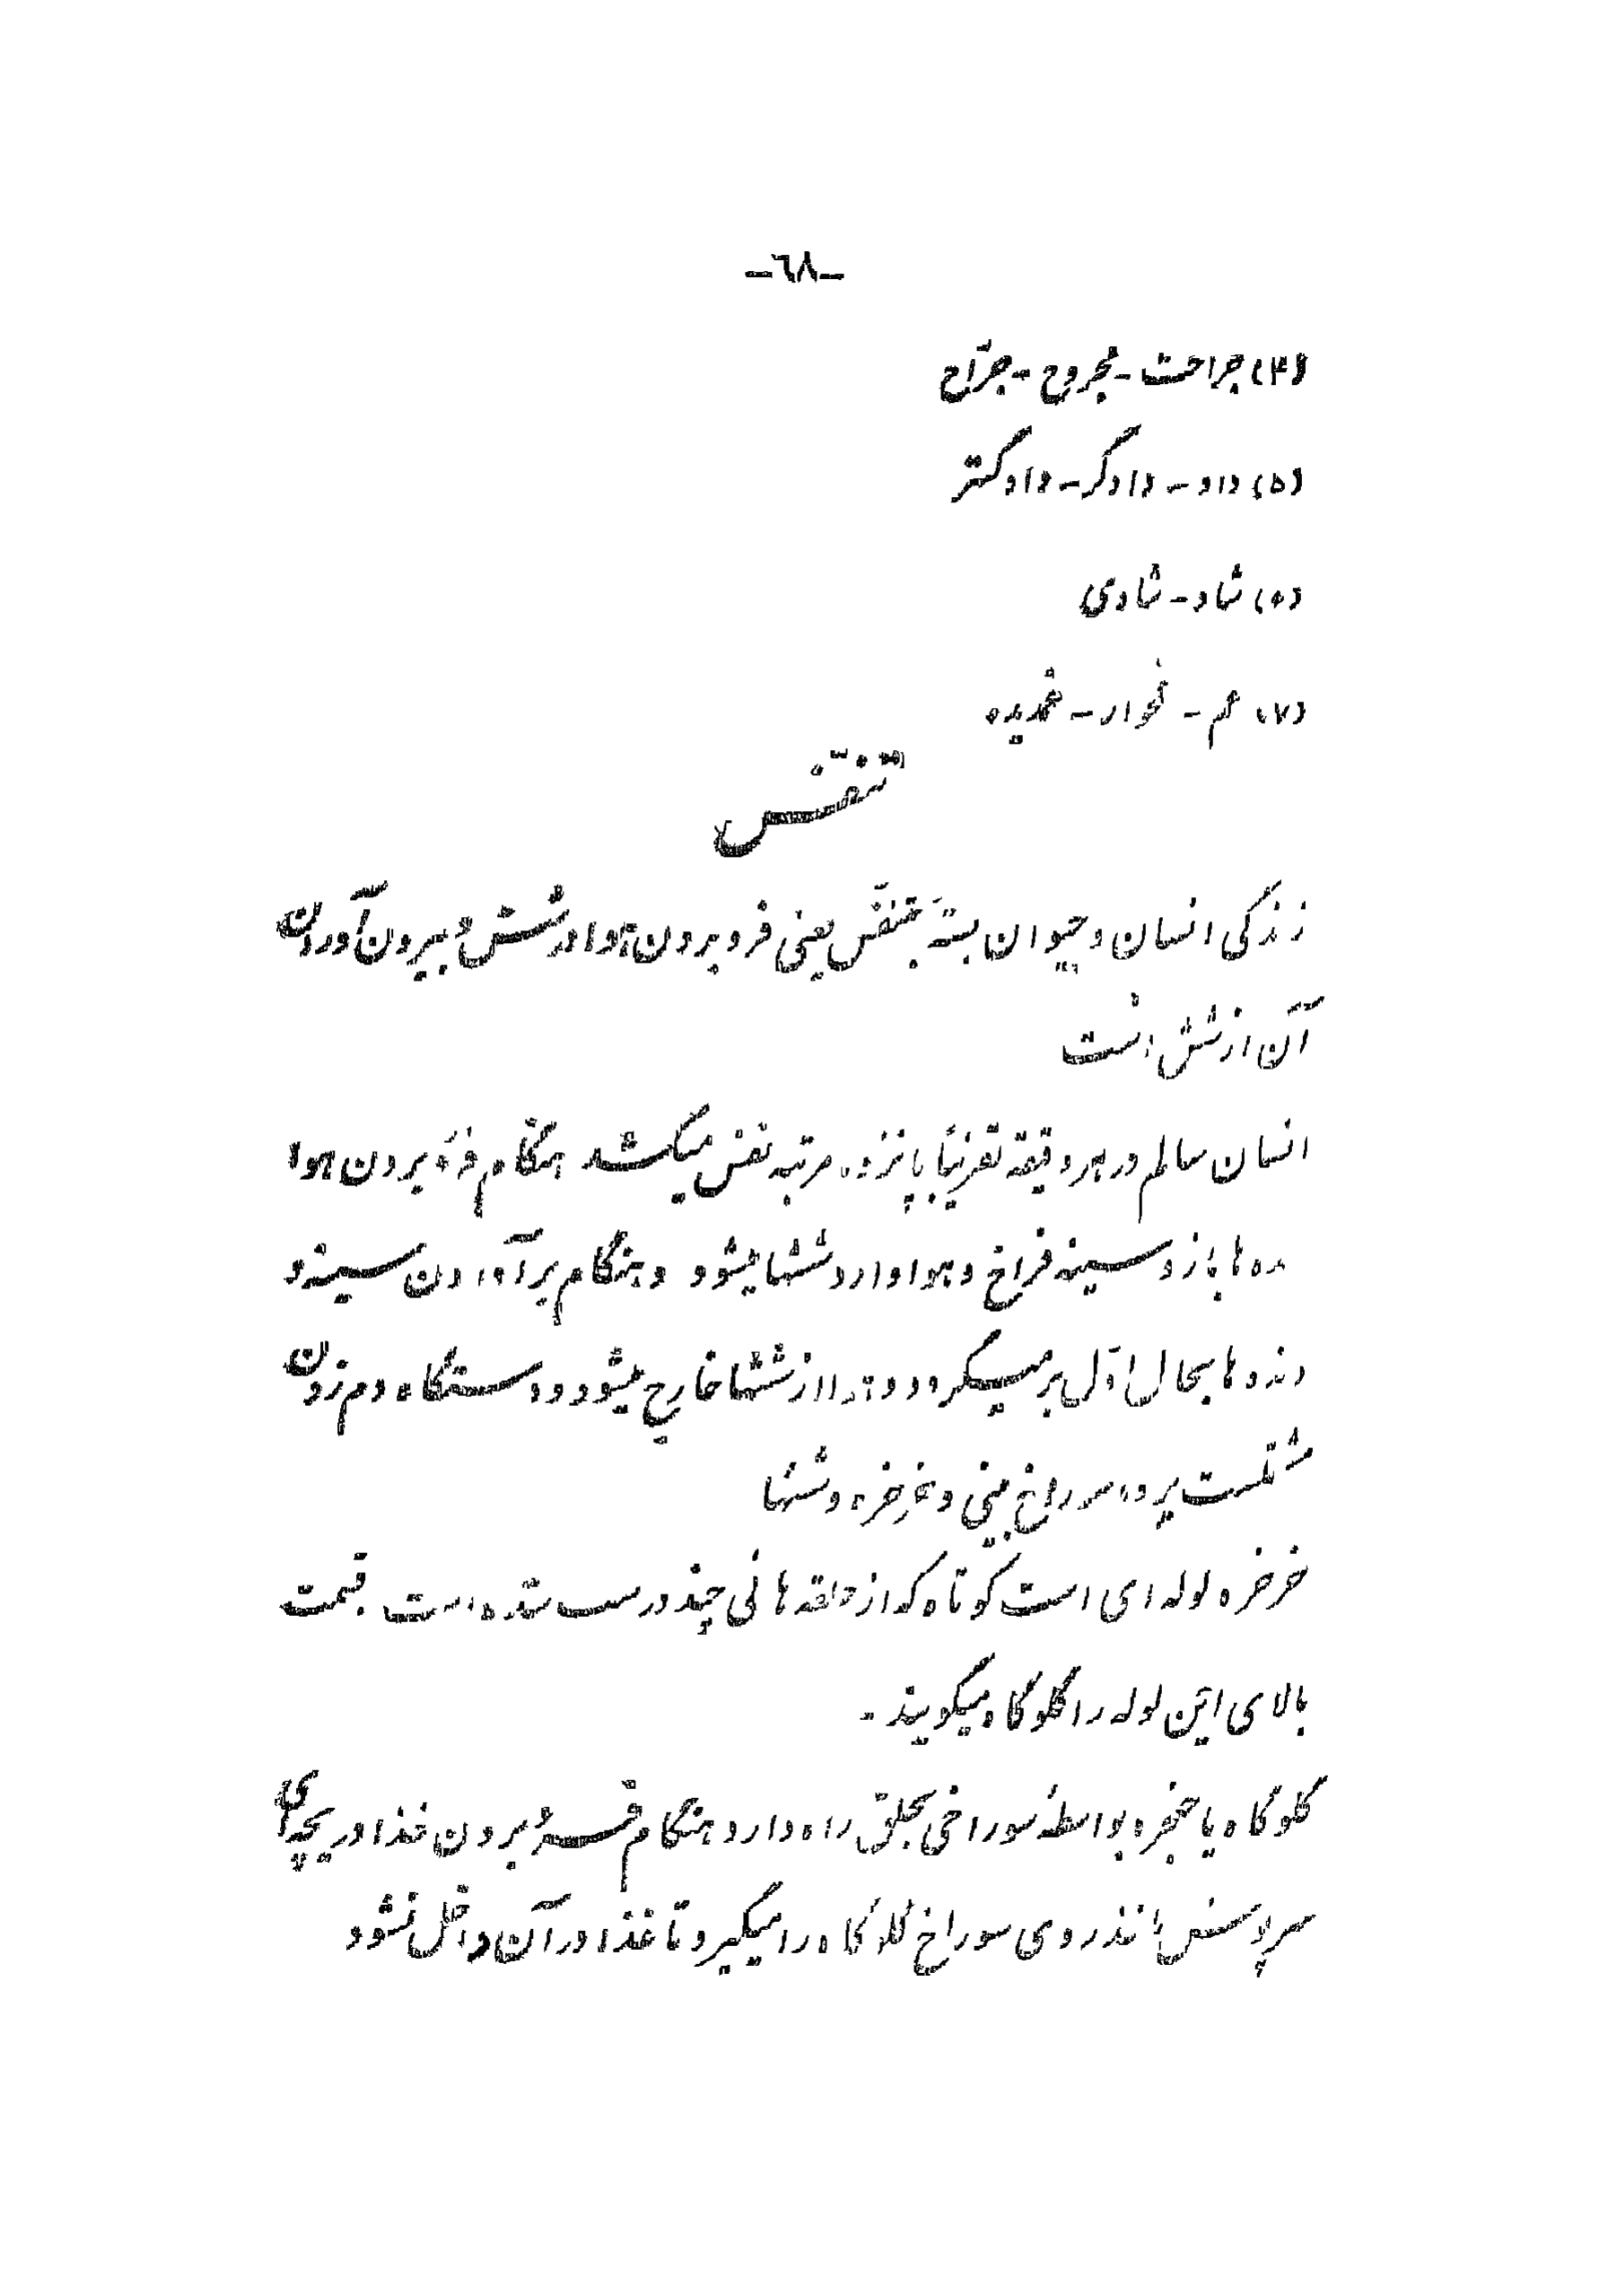 -٦٨-
(۴) جراحت - مجروح - جرّاح
(۵) داد - دادگر - دادگستر
(۶) شاد - شادی
(۷) غم - غمخوار - غمدیده
تنفّس
زندگی انسان و حیوان بسته بتنفّس یعنی فرو بردن هوا در شش و بیرون آوردن
آن از شش است
انسان سالم در هر دقیقه تقریباً پانزده مرتبه نفس میکشد هنگام فرو بردن هوا
دنده‌ها باز و سینه فراخ و هوا وارد ششها میشود و هنگام برآوردن سینه و
دنده‌ها بحال اوّل بر میگردد و هوا از ششها خارج میشود و دستگاه دم زدن
مشتملست بر دو سوراخ بینی و خرخره و ششها
خرخره لوله ای است کوتاه که از حلقه هائی چند درست شده است قسمت
بالای این لوله را گلوگاه میگویند -
گلوگاه یا حنجره بواسطهٔ سوراخی بحلق راه دارد هنگام فرو بردن غذا دریچه‌ای
سرپوش مانند روی سوراخ گلوگاه را میگیرد تا غذا در آن داخل نشود